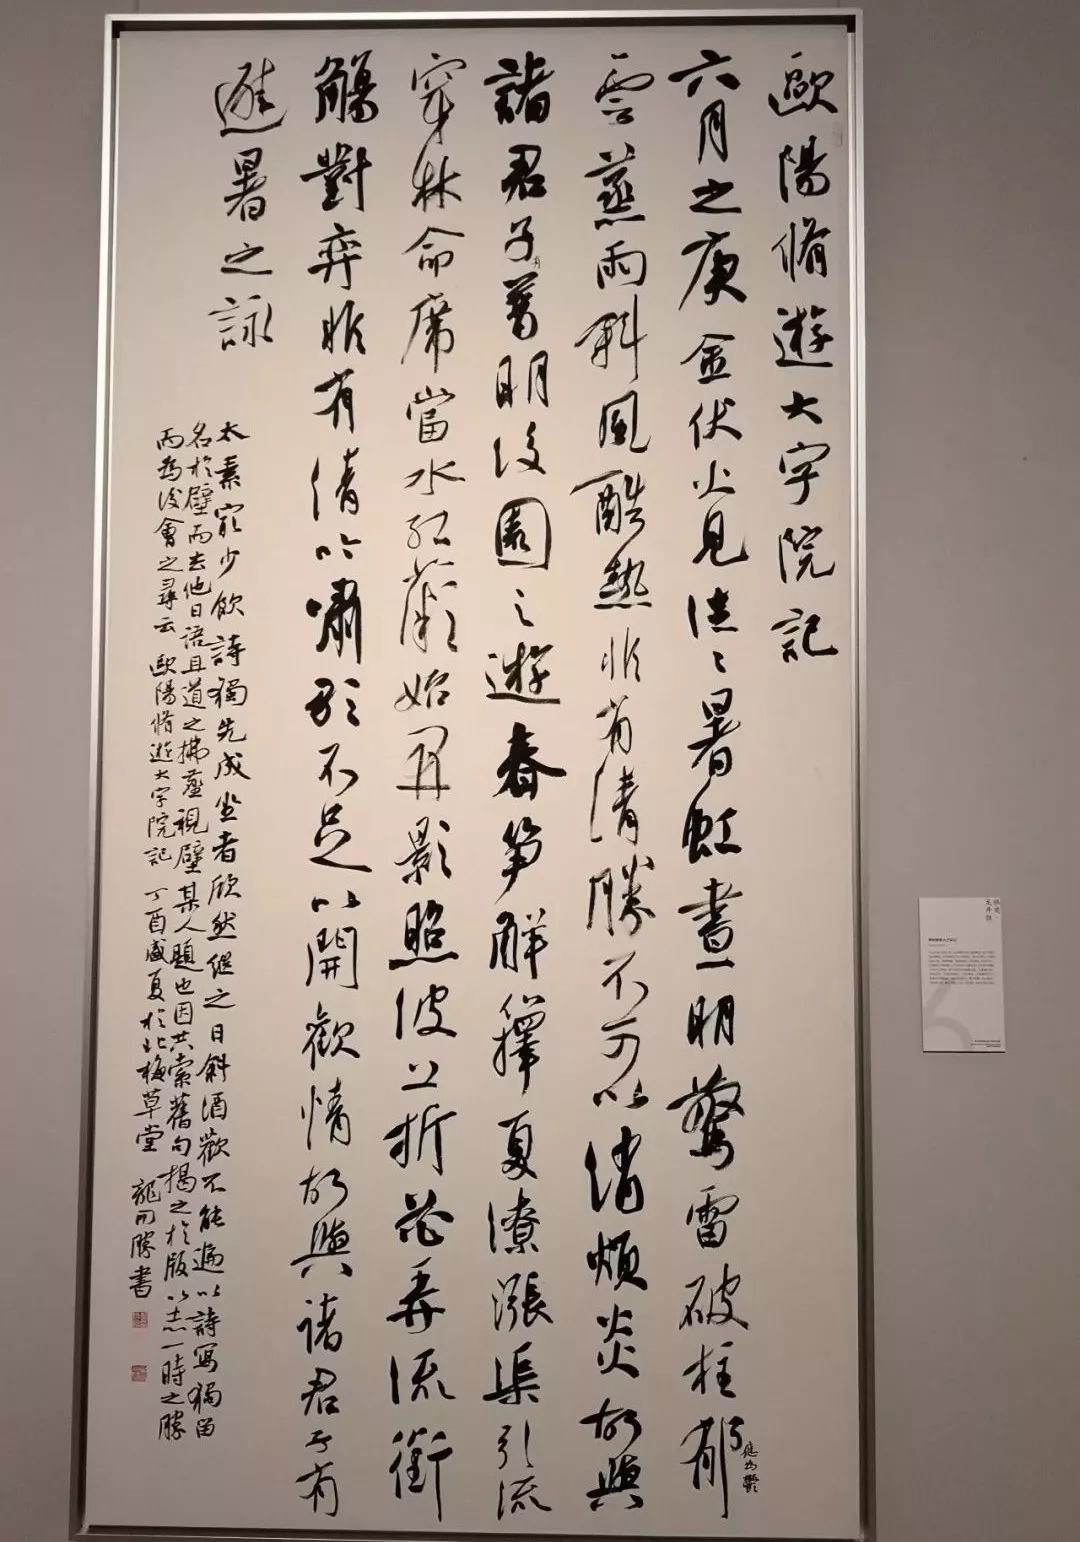 歐陽脩遊大字院記
六月之庚金伏火見洼〻暑虹晝明驚雷破柱郁
應為鬱
雲蒸雨斜風酷熱非有清勝不可以消煩炎故與
諸君子有普明後園之遊春筍解籜夏潦漲渠引流
穿林命席當水紅薇始開影照波上折花弄流銜
觴對弈非有清吟嘯歌不足以開歡情故與諸君子有
避暑之詠
太素最少飲詩獨先成坐者欣然繼之日斜酒歡不能遍以詩寫獨留
名於壁而去他日語且道之拂塵視壁某人題也因共索舊句揭之於版以志一時之勝
而為後會之尋云 歐陽脩遊大字院記 丁酉盛夏於北梅草堂 龍開勝書